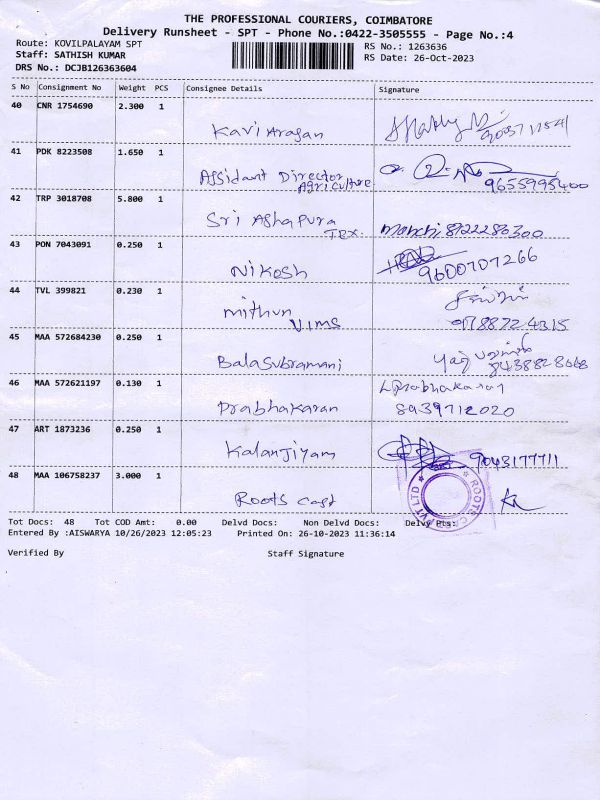 THE PROFESSIONAL COURIERS, COIMBATORE
Delivery Runsheet - SPT - Phone No.:0422-3505555 - Page No.:4
Route: KOVILPALAYAM SPT
RS No.: 1263636
Staff: SATHISH KUMAR
RS Date: 26-Oct-2023
DRS No.: DCJB126363604
S No Consignment No Weight PCS Consignee Details Signature
40 CNR 1754690 2.300 1
Kavi Arasan
41 PDK 8223508 1.650 1
Assidant Director
Agriculture
9655995400
42 TRP 3018708 5.800 1
Sri Ashapura
Tex.
8122280300
43 PON 7043091 0.250 1
Nikosh
9600707266
44 TVL 399821 0.230 1
mithun
VIMS
45 MAA 572684230 0.250 1
Balasubramani
46 MAA 572621197 0.130 1
L Prabhakaran
Prabhakaran
8939712020
47 ART 1873236 0.250 1
Kalanjiyam
9043177711
48 MAA 106758237 3.000 1
Roots cast
ROOTS CAST PVT LTD
Tot Docs: 48 Tot COD Amt: 0.00 Delvd Docs: Non Delvd Docs: Delvy Pts:
Entered By :AISWARYA 10/26/2023 12:05:23 Printed On: 26-10-2023 11:36:14
Verified By Staff Signature